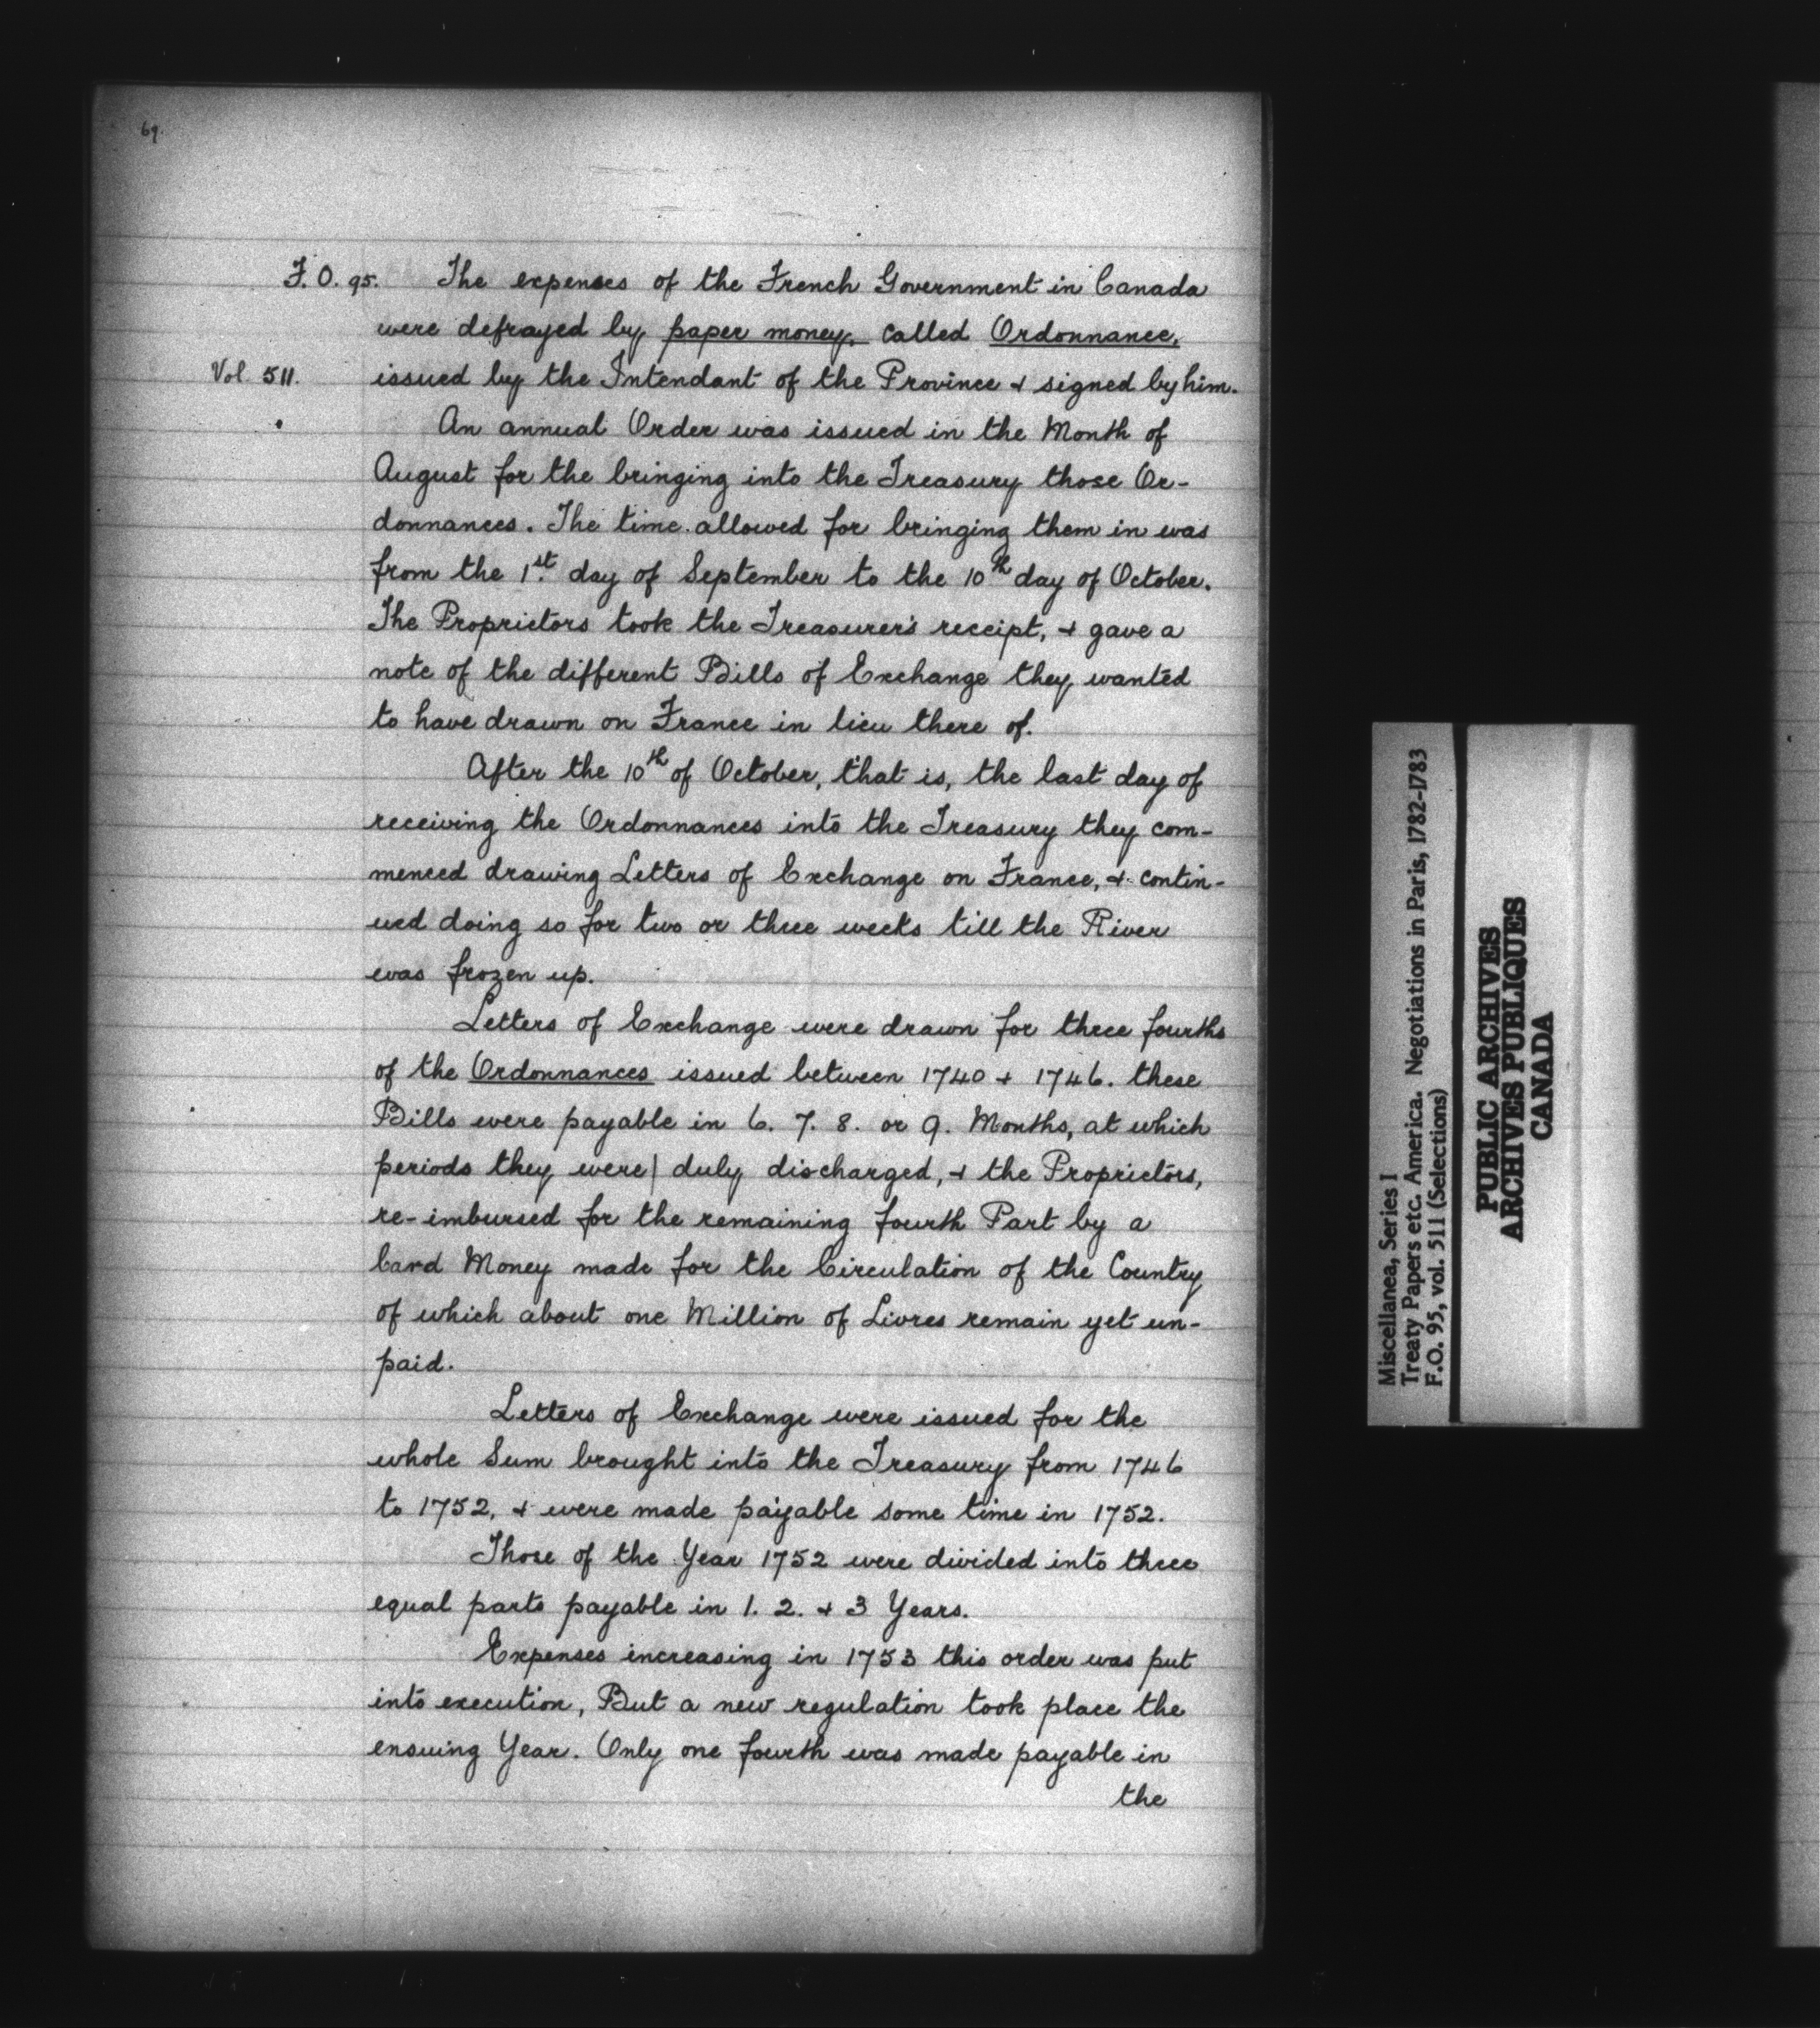 69.
F. O. 95. The expenses of the French Government in Canada
were defrayed by paper money, called Ordonnance,
Vol 511. issued by the Intendant of the Province & signed by him.
An annual Order was issued in the Month of
August for the bringing into the Treasury those Or-
donnances. The time allowed for bringing them in was
from the 1st. day of September to the 10th day of October.
The Proprietors took the Treasurer's receipt, & gave a
note of the different Bills of Exchange they wanted
to have drawn on France in lieu there of.
After the 10th of October, that is, the last day of
receiving the Ordonnances into the Treasury they com-
menced drawing Letters of Exchange on France, & contin-
ued doing so for two or three weeks till the River
was frozen up.
Letters of Exchange were drawn for three fourths
of the Ordonnances issued between 1740 & 1746. these
Bills were payable in 6. 7. 8. or 9. Months, at which
periods they were| duly discharged, & the Proprietors,
re-imbursed for the remaining fourth Part by a
Card Money made for the Circulation of the Country
of which about one Million of Livres remain yet un-
paid.
Letters of Exchange were issued for the
whole Sum brought into the Treasury from 1746
to 1752, & were made payable some time in 1752.
Those of the Year 1752 were divided into three
equal parts payable in 1. 2. & 3 Years.
Expenses increasing in 1753 this order was put
into execution, But a new regulation took place the
ensuing Year. Only one fourth was made payable in
the
Miscellanea, Series I
Treaty Papers etc. America. Negotiations in Paris, 1782-1783
F.O. 95, vol. 511 (Selections)
PUBLIC ARCHIVES
ARCHIVES PUBLIQUES
CANADA